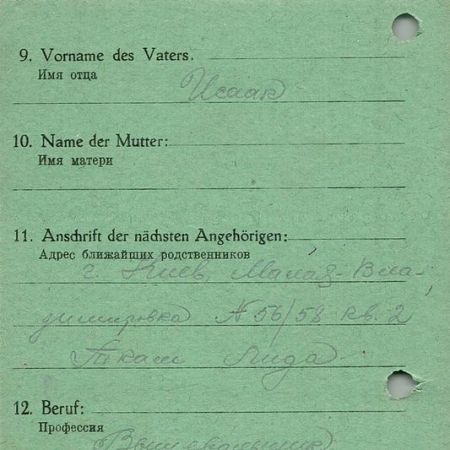 9. Vorname des Vaters.
Имя отца
Исаак
10. Name der Mutter:
Имя матери
11. Anschrift der nächsten Angehörigen:
Адрес ближайших родственников
г. Киев, Малая-Вла-
димировка № 56/58 кв. 2
Ткач Лида
12. Beruf:
Профессия